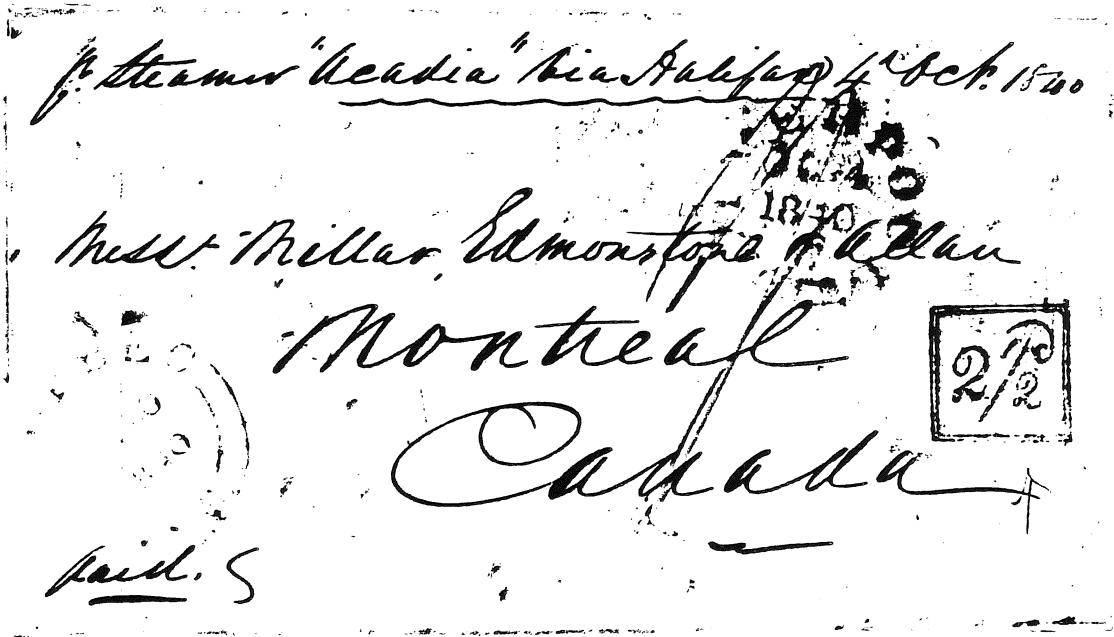 p. Steamer "Acadia" via Halifax 4th Oct. 1840
1840
Messrs. Millar, Edmonstone & Allan
Montreal
2/2
Canada
paid.